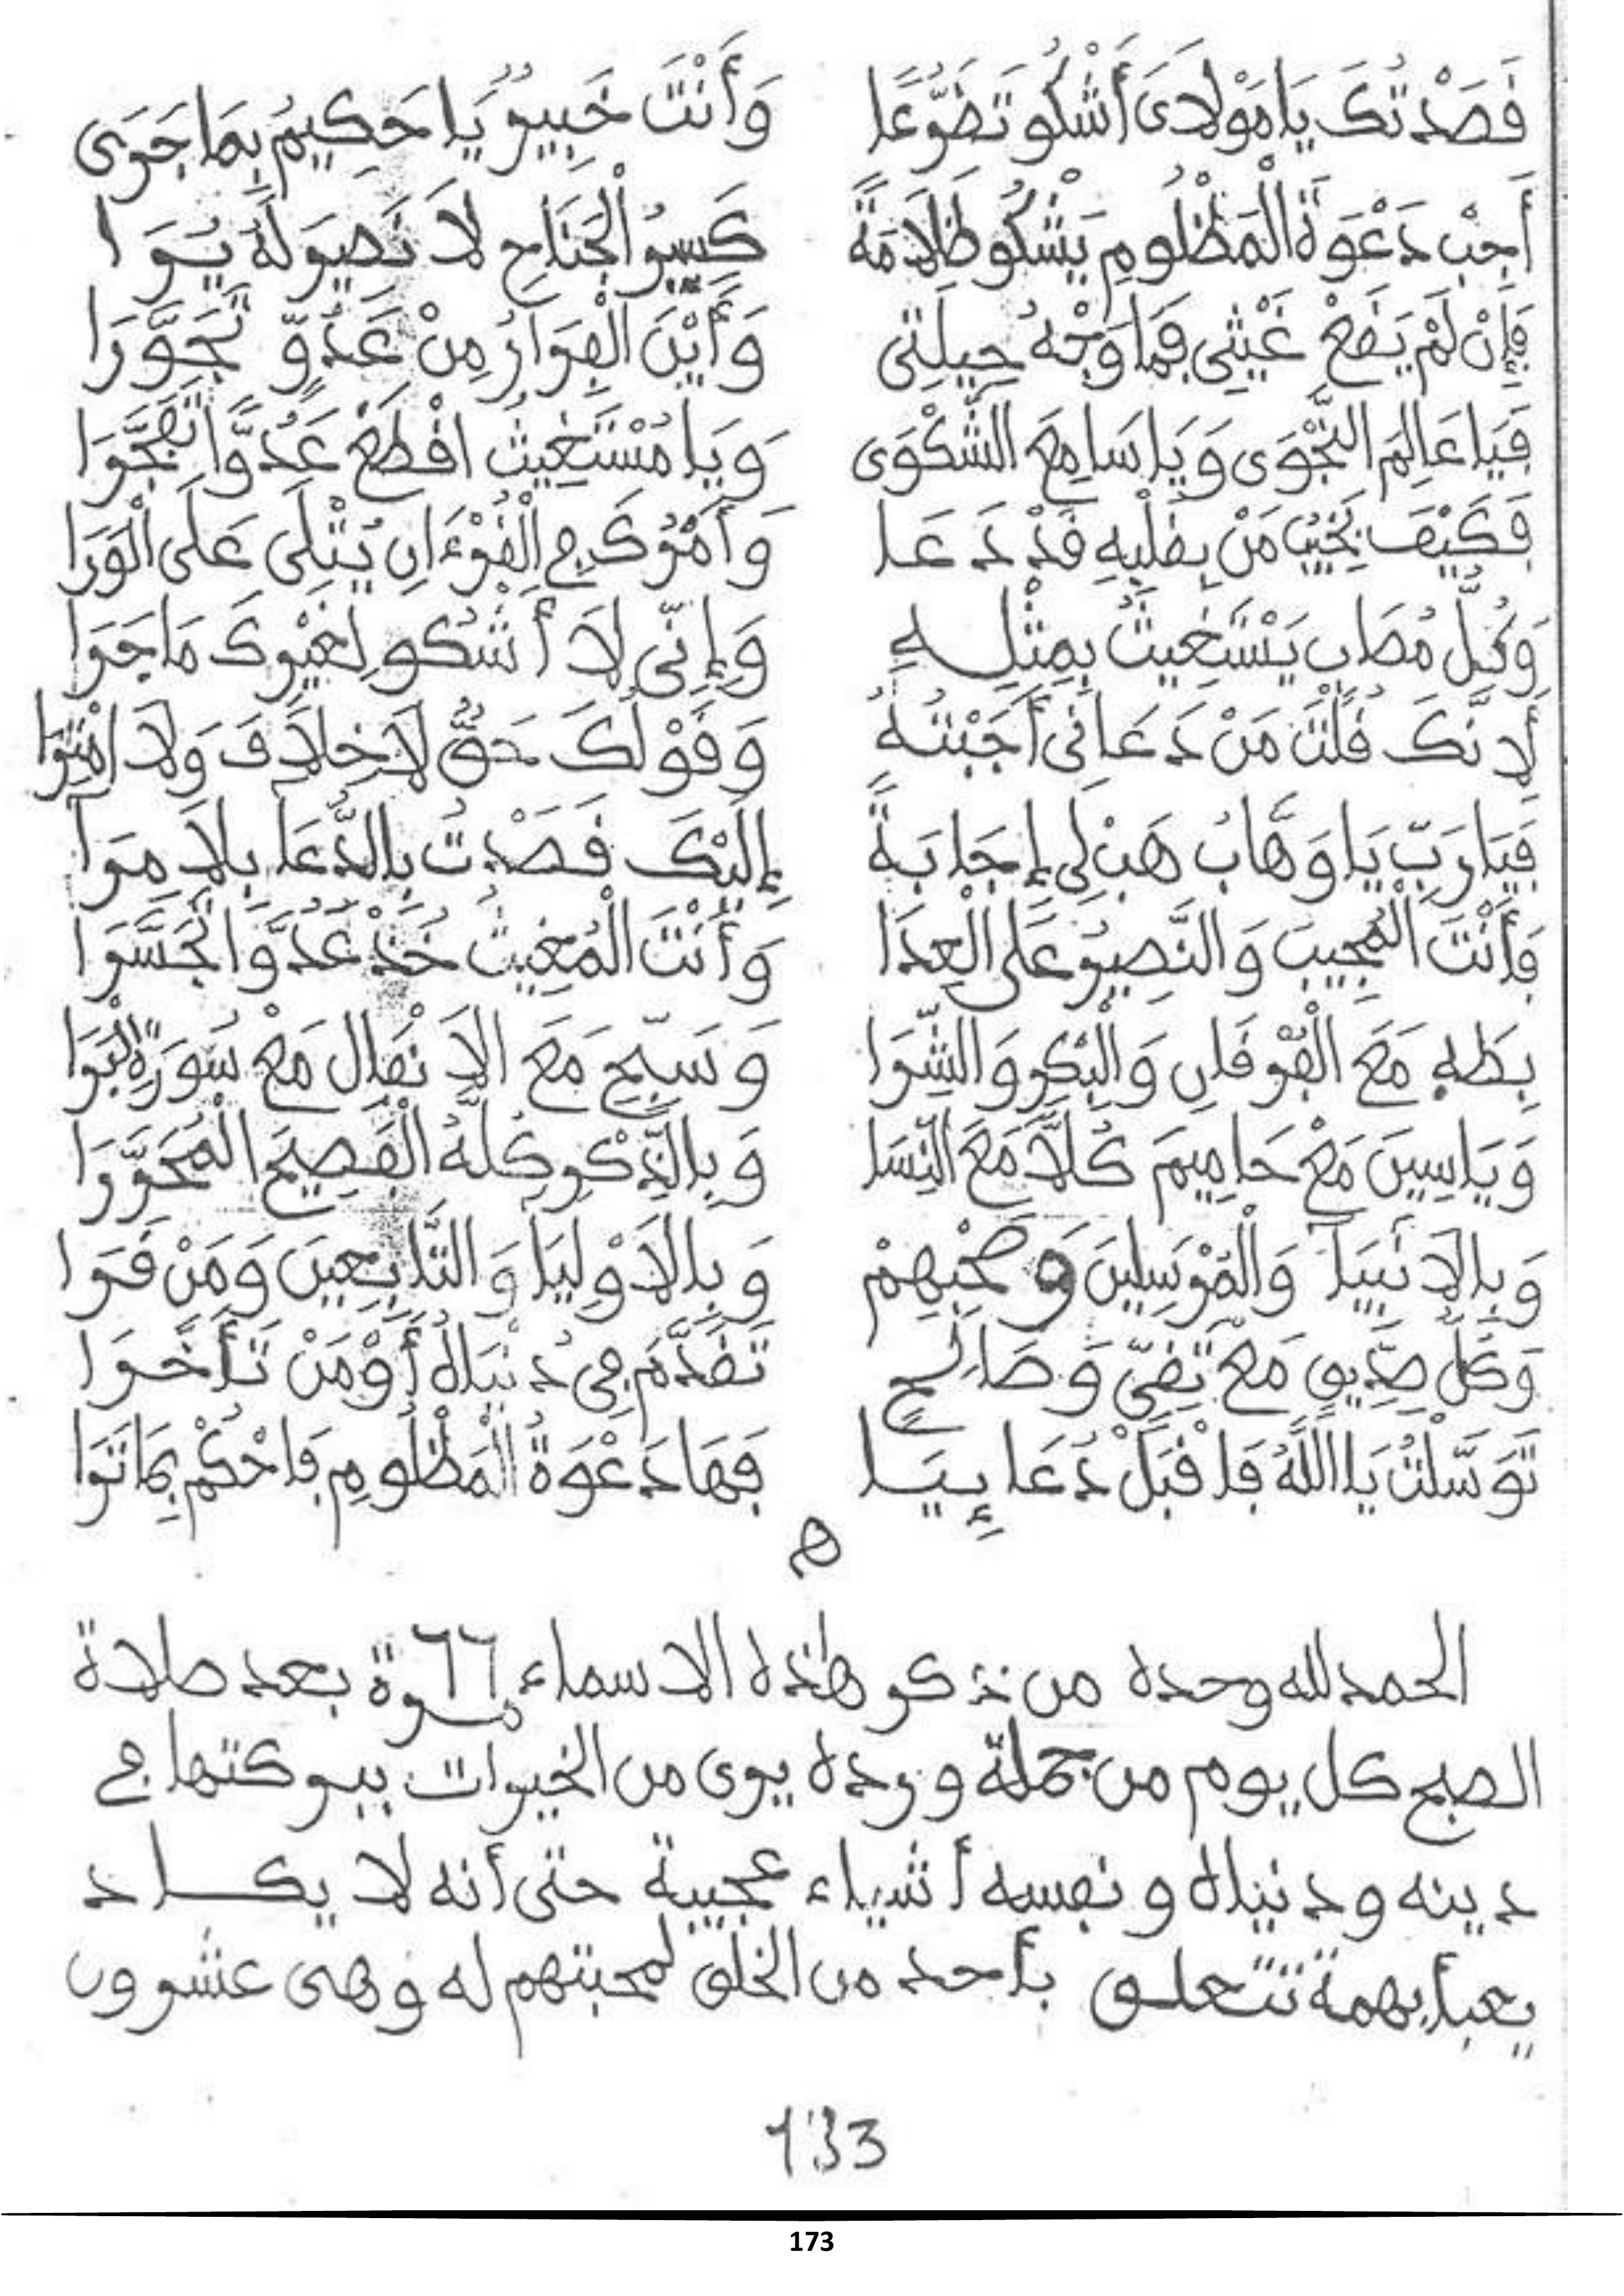 قَصَدْتُكَ يَا مَوْلَايَ أَشْكُو تَضَرُّعًا وَأَنْتَ خَبِيرٌ يَا حَكِيمُ بِمَا جَرَى
أَجِبْ دَعْوَةَ الْمَظْلُومِ يَشْكُو ظَلَامَةً كَسِيرُ الْجَنَاحِ لَا نَصِيرَ لَهُ يُرَا
فَإِنْ لَمْ يَقَعْ غَيْثِي فَمَا وَجْهُ حِيلَتِي وَأَيْنَ الْفِرَارُ مِنْ عَدُوٍّ تَجَوَّرَا
فَيَا عَالِمَ النَّجْوَى وَيَا سَامِعَ الشَّكْوَى وَيَا مُسْتَغِيثُ اقْطَعْ عَدُوًّا تَفَجَّرَا
فَكَيْفَ يَخِيبُ مَنْ بِقَلْبِهِ قَدْ دَعَا وَأَمْرُكَ فِي الْقُرْءَانِ يُتْلَى عَلَى الْوَرَا
وَكُلُّ مُصَابٍ يَسْتَغِيثُ بِمِثْلِهِ وَإِنِّي لَا أَشْكُو لِغَيْرِكَ مَا جَرَا
لِأَنَّكَ قُلْتَ مَنْ دَعَانِي أَجَبْتُهُ وَقَوْلُكَ حَقٌّ لَا خِلَافَ وَلَا امْتِرَا
فَيَا رَبِّ يَا وَهَّابُ هَبْ لِي إِجَابَةً إِلَيْكَ قَصَدْتُ بِالدُّعَا بِلَا مِرَا
فَأَنْتَ الْمُجِيبُ وَالنَّصِيرُ عَلَى الْعِدَا وَأَنْتَ الْمُغِيثُ خُذْ عَدُوًّا تَجَسَّرَا
بِطَهَ مَعَ الْفُرْقَانِ وَالْبِكْرِ وَالشِّرَا وَسَبِّحْ مَعَ الْأَنْفَالِ مَعْ سُورَةِ الْبَرَا
وَيَاسِينَ مَعْ حَامِيمَ كُلًّا مَعَ النِّسَا وَبِالذِّكْرِ كُلِّهِ الْفَصِيحِ الْمُحَرَّرَا
وَبِالْأَنْبِيَا وَالْمُرْسَلِينَ وَصَحْبِهِمْ وَبِالْأَوْلِيَا وَالتَّابِعِينَ وَمَنْ قَرَا
وَكُلِّ صِدِّيقٍ مَعْ تَقِيٍّ وَصَالِحٍ تَقَدَّمَ فِي دُنْيَاهُ أَوْ مَنْ تَأَخَّرَا
تَوَسَّلْتُ يَا اللَّهُ فَاقْبَلْ دُعَائِيَا فَهَا دَعْوَةُ الْمَظْلُومِ فَاحْكُمْ بِمَا تَرَا
ه
الحمد لله وحده من ذكر هذه الاسماء ٦٦ مرة بعد صلاة
الصبح كل يوم من جملة ورده يرى من الخيرات ببركتها في
دينه ودنياه ونفسه أشياء عجيبة حتى أنه لا يكاد
يعبأ بهمة تتعلق بأحد من الخلق لمحبتهم له وهي عشرون
133
173